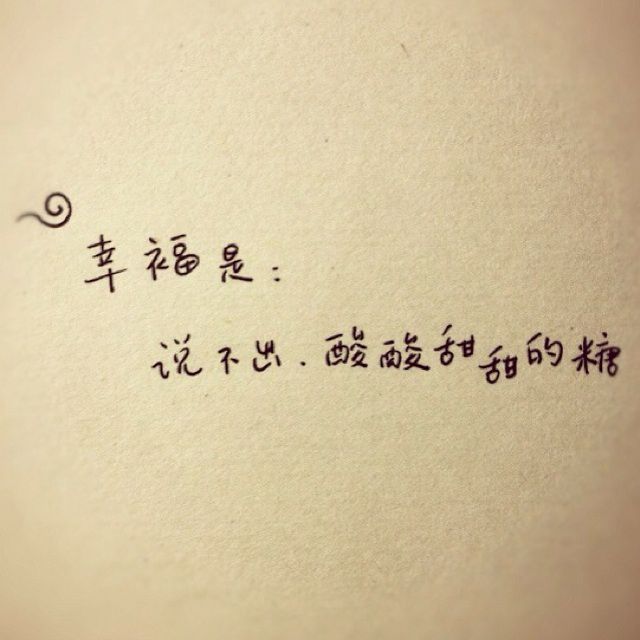 幸福是：
说不出.酸酸甜甜的糖